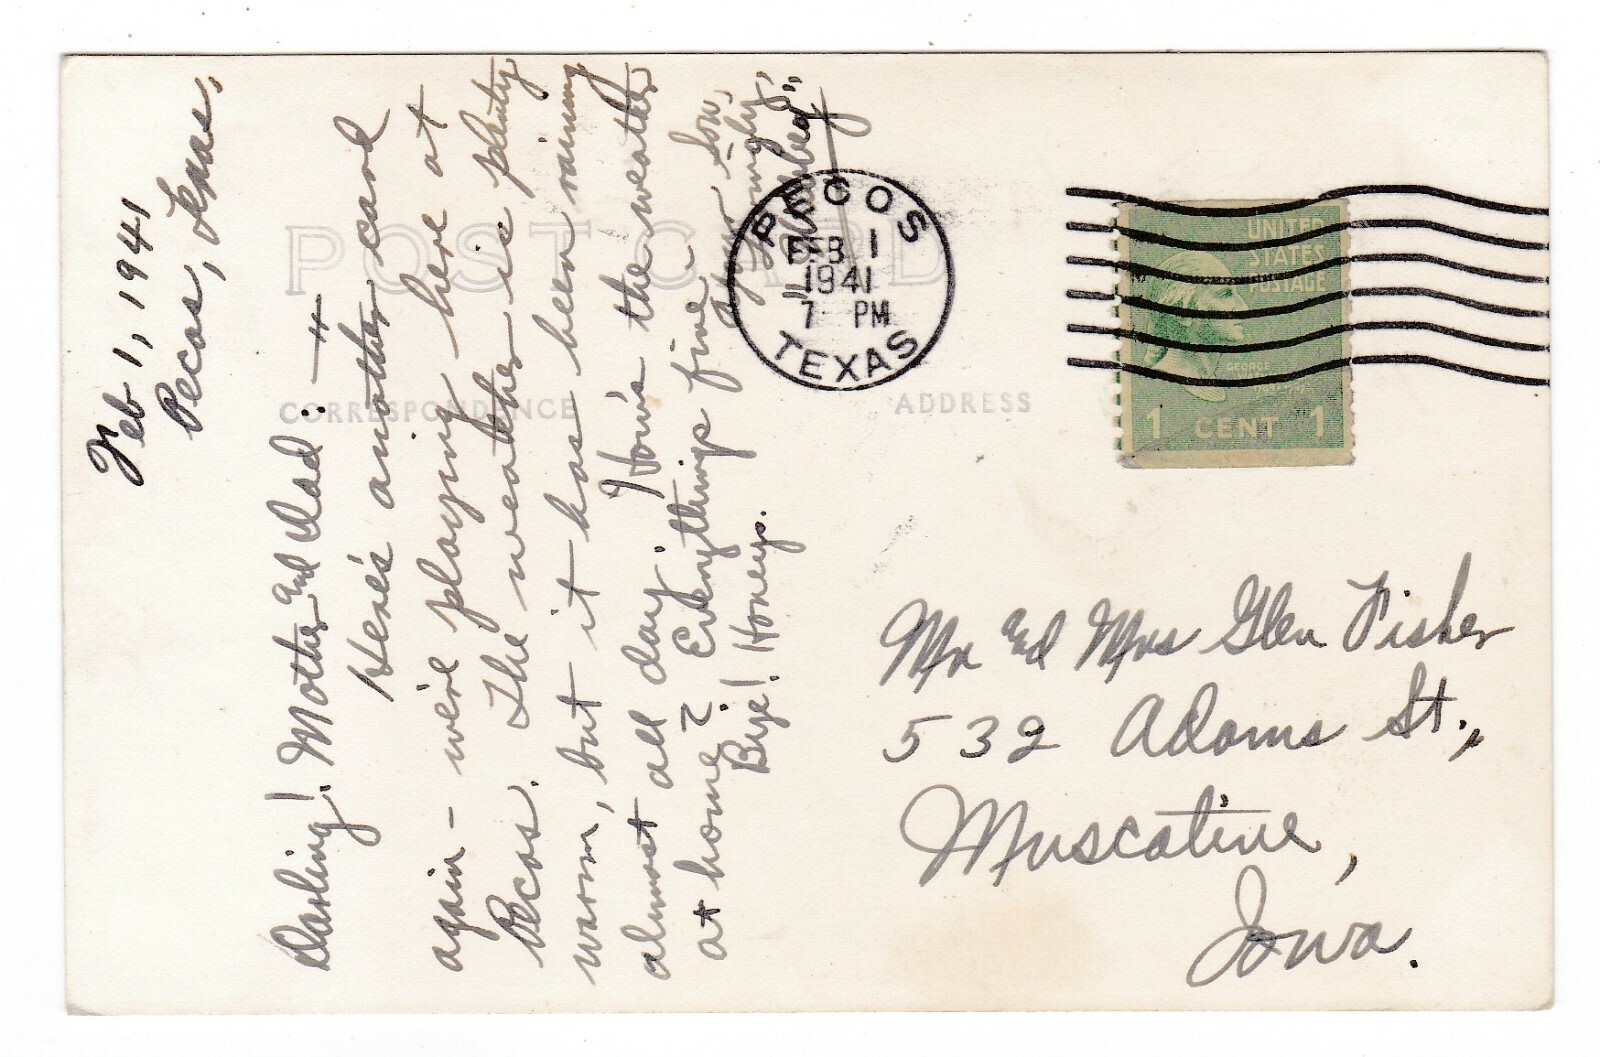 Feb 1, 1941
Pecos, Texas.
Darling! Mother and Dad :—"
Here's another card
again - we're playing here at
Pecos. The weather is plenty
warm, but it has been raining
almost all day. How's the weather
at home? Everything's fine -
Bye! Honeys.
Your Son,
POST CARD
CORRESPONDENCE
ADDRESS
PECOS
FEB 1
1941
7 PM
TEXAS
UNITED
STATES
POSTAGE
GEORGE
1 CENT 1
Mr and Mrs Glen Fisher
532 Adams St.,
Muscatine,
Iowa.